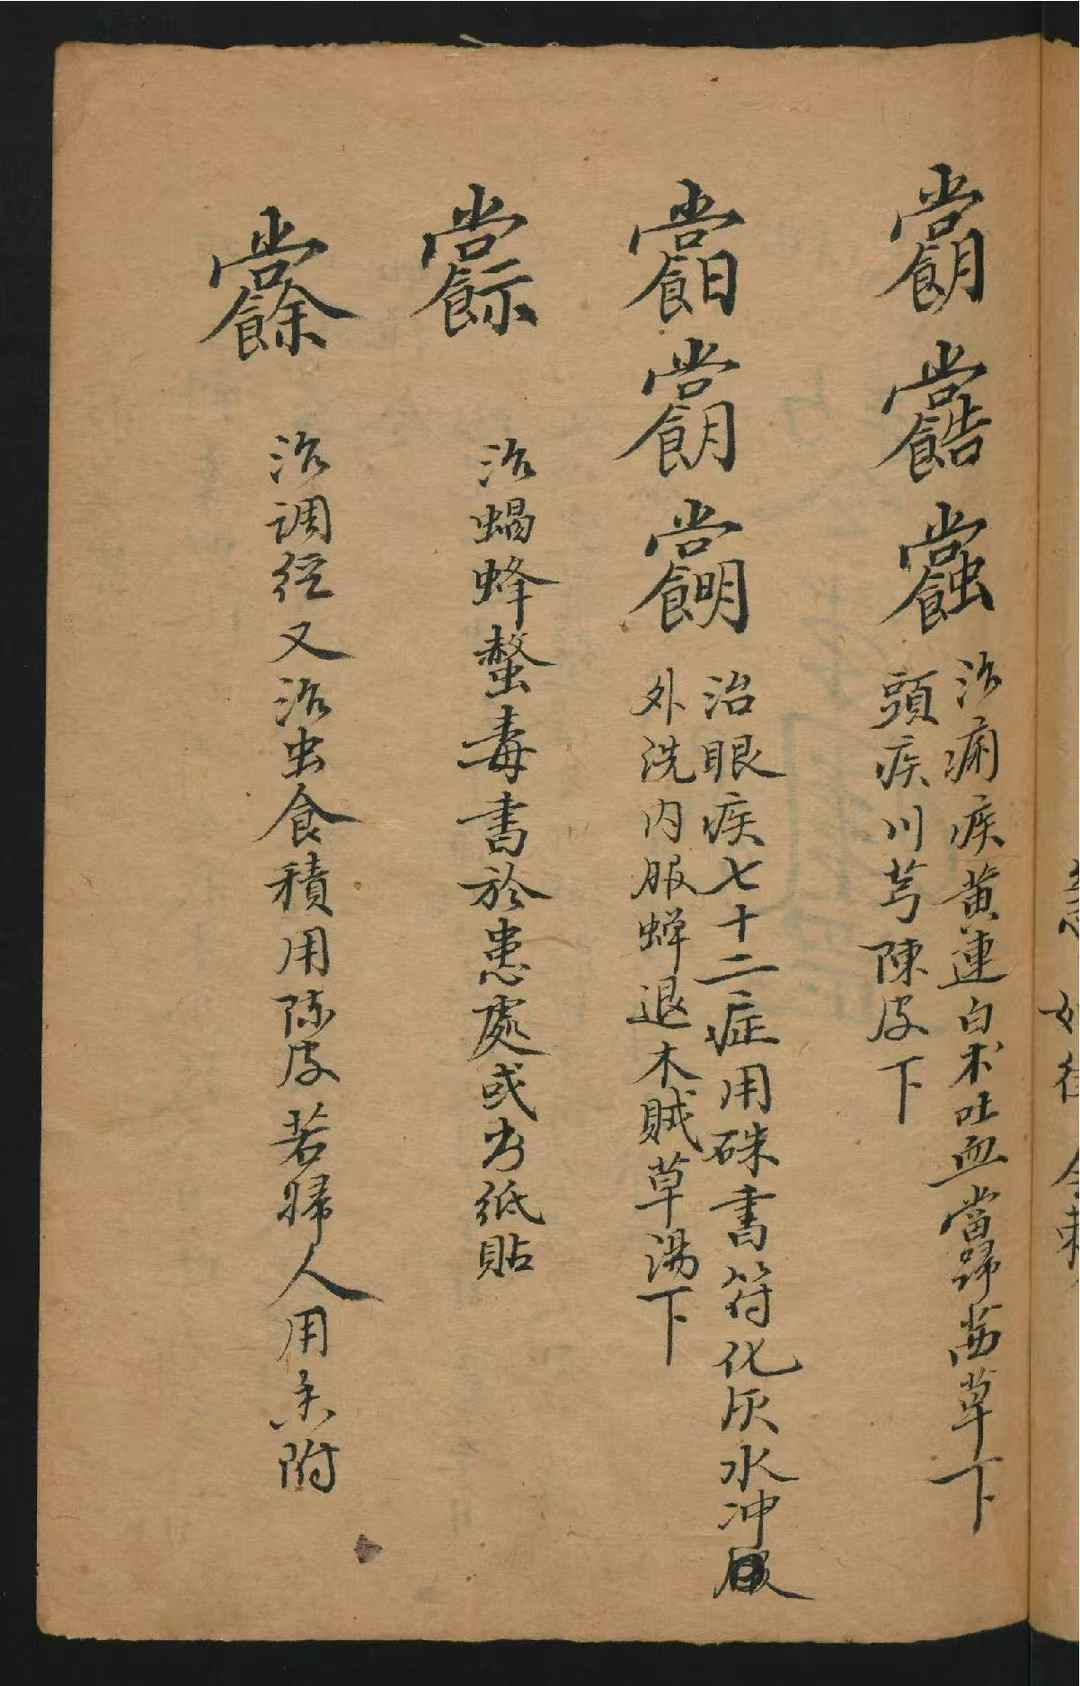 治痢疾黄連白术吐血當歸茜草下
頭疾川芎陳皮下
治眼疾七十二症用硃書符化灰水冲服
外洗内服蝉退木賊草湯下
治蝎蜂螫毒書於患處或书紙貼
治調経又治虫食積用陳皮若婦人用香附